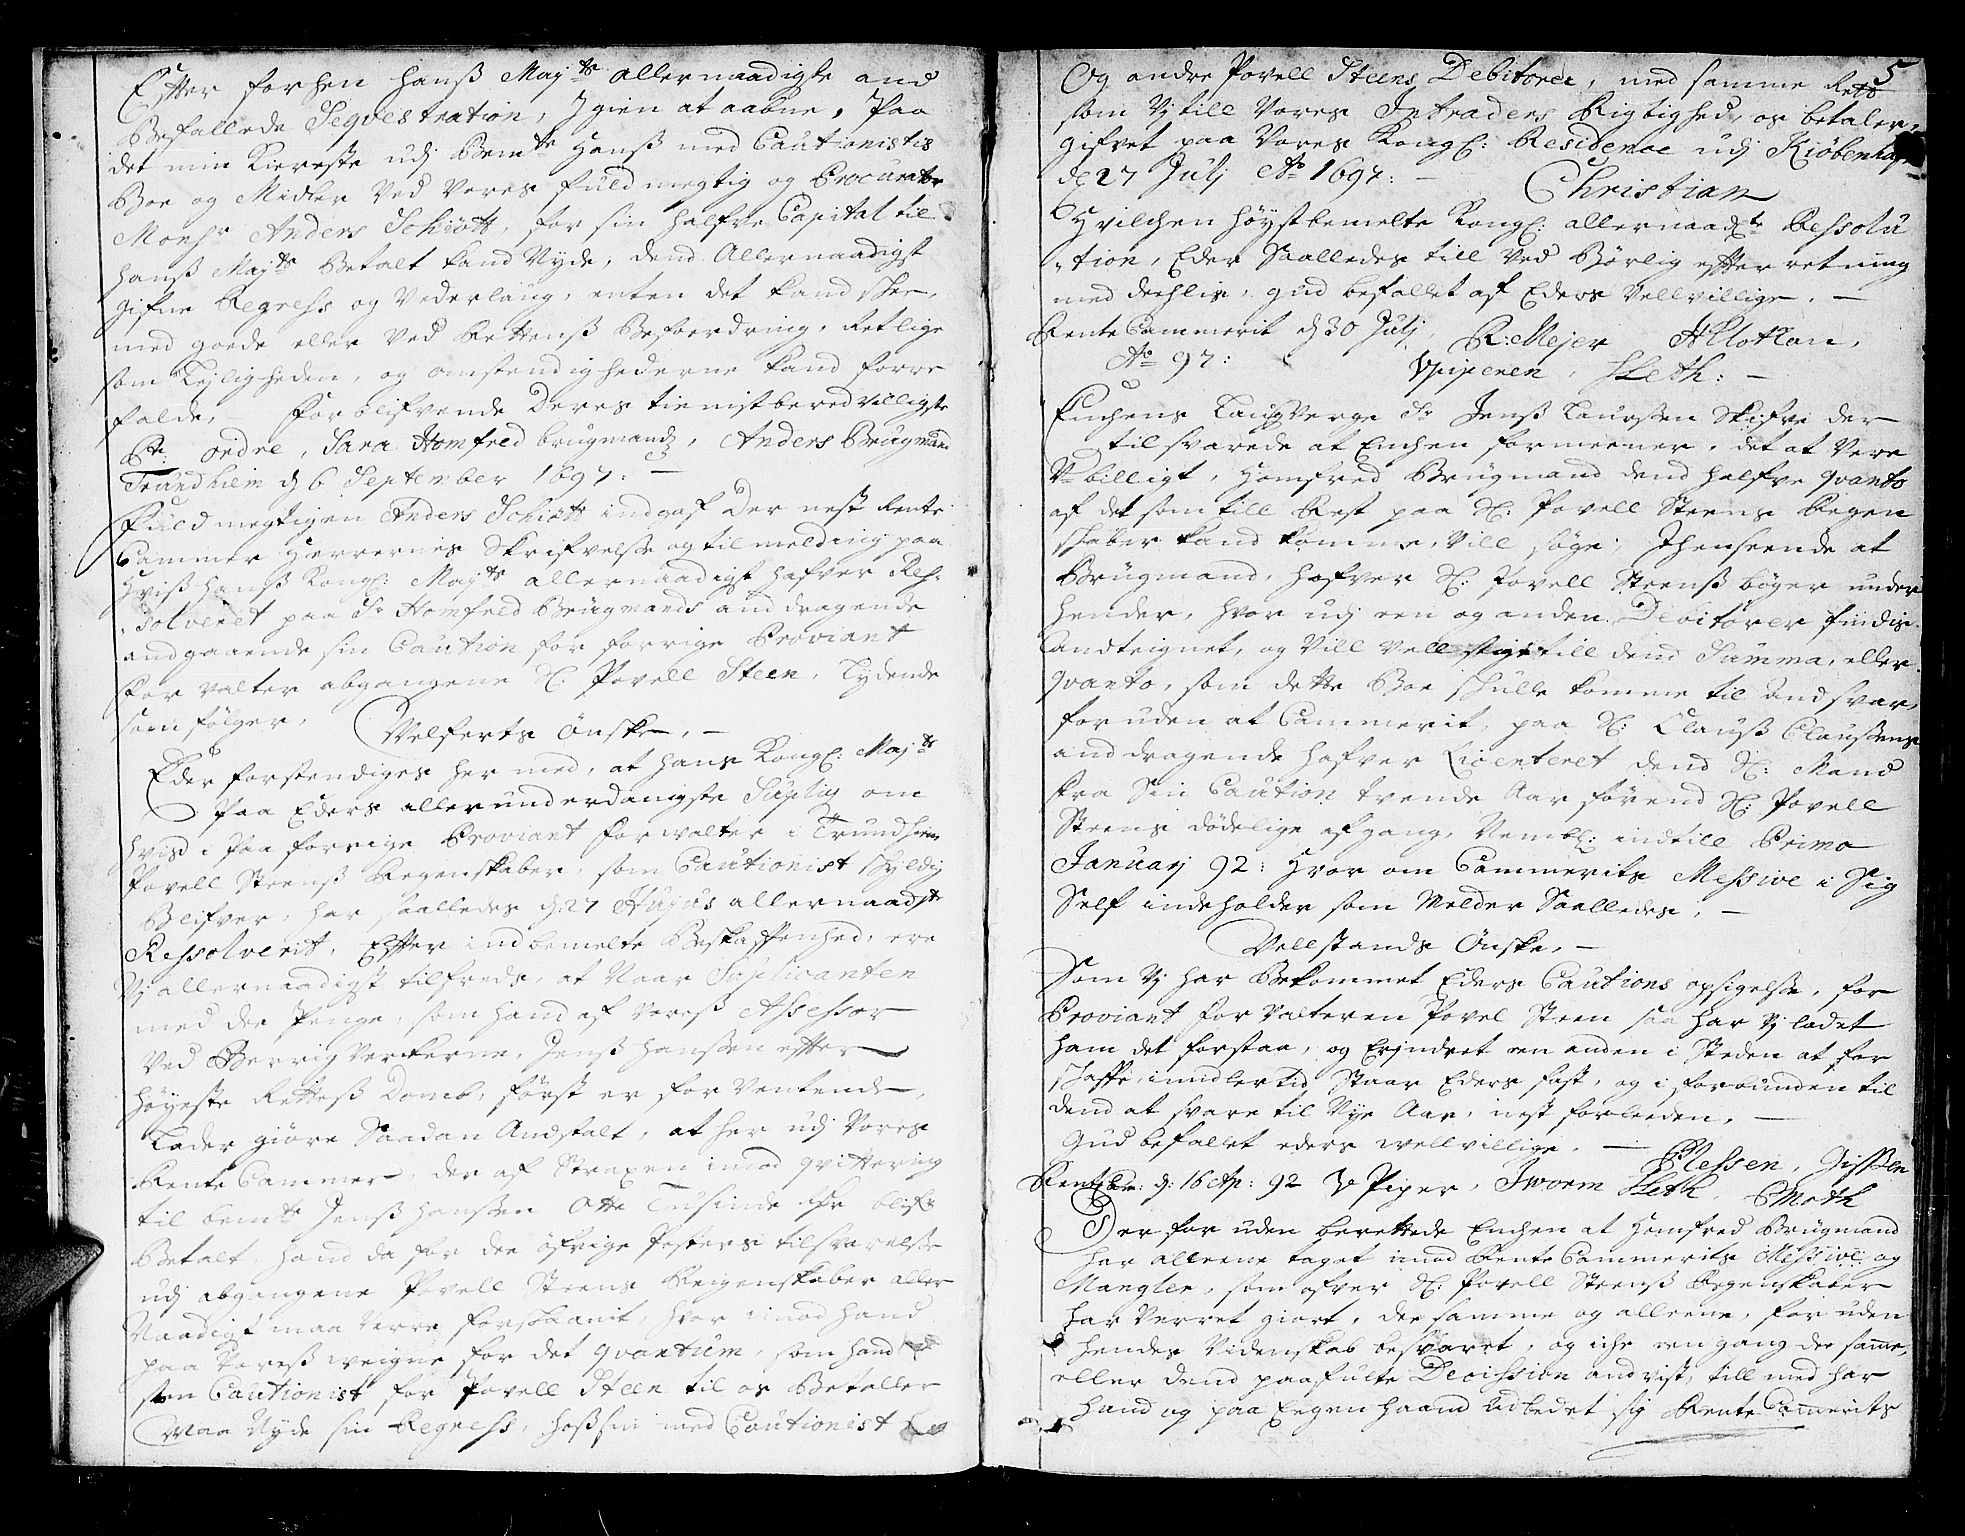 Efter forhen Hanß Mayts allernaadigste and
Befallede Seqvestration, Igien at aabne, Paa
det min Kiereste udj Bemte Hanß med Cautionistis
Boe og Midler Ved Vores fuldmegtig og Procurator
Monsr Anders Schiøtt, for sin halfve Capital til
hanß Mayts Betalt kand Nyde, dend Allernaadigst
gifne Regress og Vederlaug, enten det kand skee,
med goede eller Ved Rettenß Befordring, Retlige
som Lejligheden, og omstendighederne kand forre
falde, Forblifvende Deres tienistberedvilligste
ordre, Sara Homfred brugmandß, Anders Brugmand
Trundhiem d 6 September 1697: —
Fuldmegtigen Anders Schiøtt indgaf Der nest Rente
Cammer Herrernes Skrifvelse og tilmelding paa
Hviß hanß Kongl: Mayts allernaadigst hafver Res-
solveret paa Sr Homfred Brugmands anddragende
andgaaende sin Caution for forrige Proviant
for valter abgangene Sl: Povell Steen, Lydende
som følger,
Velferts Ønske, —
Eder forstendiges her med, at hans Kongl: Mayts
Paa Eders allerunderdanigste Supliq om
hvis i Paa forrige Proviant forwalter i Trundhiem
Povell Steenß Regenskaber, som Cautionist skyldig
Blifver, har saalledes d: 27 Hujus allernaadste
Ressolverit, Efter indbemelte Beskaffenhed, ere
Vj allernaadigst tilfreds, at Naar Suplicanten
med de Penge, som hand af Voreß Assessor
Ved Berrig Verkerne, Jenß Hanßen efter
høyeste Retteß Domb, først er for Ventende,
Lader giøre Saadan Andstalt, at her udj Vores
Rente Cammer, der af Straxen imod qvittering
til bemte Jenß Hanßen Otte Tusinde
Betalt hand da for de øfrige Posters tilsvarelse
udj abgangene Povell Steens Regenskaber aller
Naadigst maa Verre forskaanit, hvor imod hand
paa Voreß weigne for det qvantum, som hand
som Cautionist for Povell Steen til os Betaller
maa Nyde sin Regress, hoß sin med Cautionist
5
Og andre Povell Steens Debitorer, med samme Rett
som Vj till Vores Intraders Rigtighed, os betaler,
gifvet paa Vores Kongl: Residence udj Kiøbenhafn
d 27 Julj Ao 1697: — Christian
Hvilchen høystbemelte Kongl: allernaadste Ressolu
-tion, Eder Saalledes till Ved Børlig efter retning
med deehlis, gud befallet af Eders Vellvillige. —
Rente Cammerit d 30 Julj R: Mejer
Ao 97:
Enchens Laugverge Sr Jenß Laursen Skifvi der
til svarede at Enchen formeener, det at Vere
U-billigt, Homfred Brugmand dend halfve qvanto
af det som till Rest paa Sl: Povell Steens Regen
skaber kand komme, Vill søge, Ihenseende at
Brugmand, hafver Sl: Povell Steenß bøger under
hender, hvor udj een og anden Debitorer findis
andteignet, og Vill Vell stige till dend Summa, eller
qvanto, som dette Boe skulle komme til andsvar,
for uden at Cammerit, paa Sl: Clauß Claußens
anddragende hafver Licenteret dend Sl: Mand
fra Sin Caution tvende Aar førend Sl: Povell
Steens dødelige afgang, Nembl: indtill Primo
Januarj 92: Hvor om Cammerits Messive i Sig
Self indeholder som Melder Saalledes, —
Vellstands Ønske, —
Som Vj har Bekommet Eders Cautions opsigelse, for
Proviant for Valteren Povel Steen saa har Vj ladet
ham det forstaa, og Erindret een anden i Steden at for
skaffe, imidlertid Staar Eders fast, og i forbunden til
dend at svare til Nye Aar, nest forleeden, —
Gud befallet eders wellvillige. — Plessen,
d: 16 Ap: 92 V Piper, J Worm Moth
Der for uden berettede Enchen at Homfred Brugmand
har alleene taget imod Rente Cammerits Messive og
Mangler, som ofver Sl: Povell Steenß Regenskaber
har Verret giort, de samme og alleene, for uden
hendes Videnskab besvaret, og iche een gang de samme,
eller dend paafulte Decission andvist, till med har
hand og paa Eegen haand udbedet sig Rente Camerits